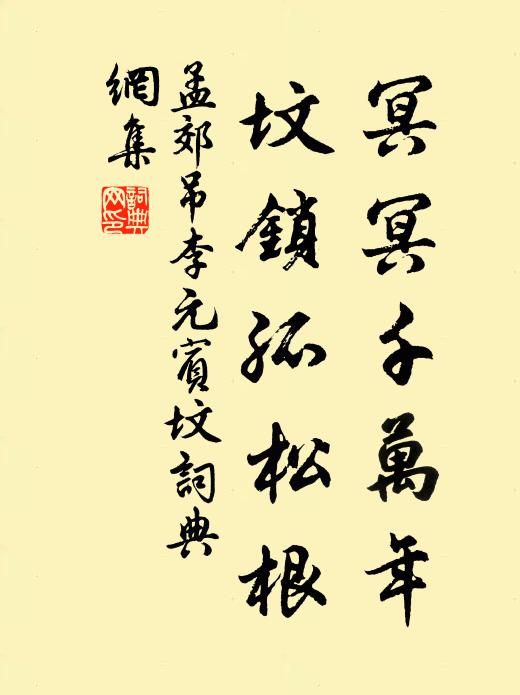 冥冥千萬年
坟鎖孤松根
孟郊吊李元賓坟詞典
網集
詞典
网印